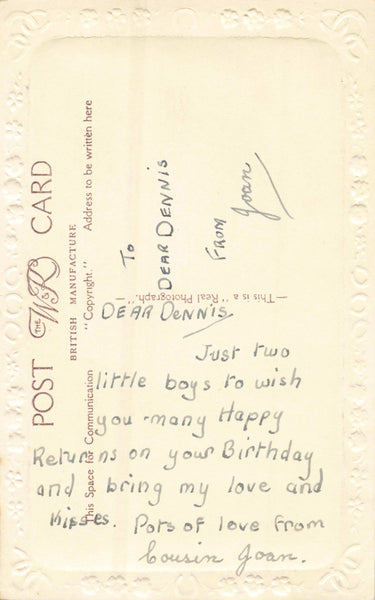 POST CARD
THE W&R
BRITISH MANUFACTURE
"Copyright."
This Space for Communication
Address to be written here
— This is a "Real Photograph." —
To
DEAR DENNIS
FROM
Joan
DEAR DENNIS
Just two
little boys to wish
you many Happy
Returns on your Birthday
and bring my love and
kisses. Pots of love from
Cousin Joan.